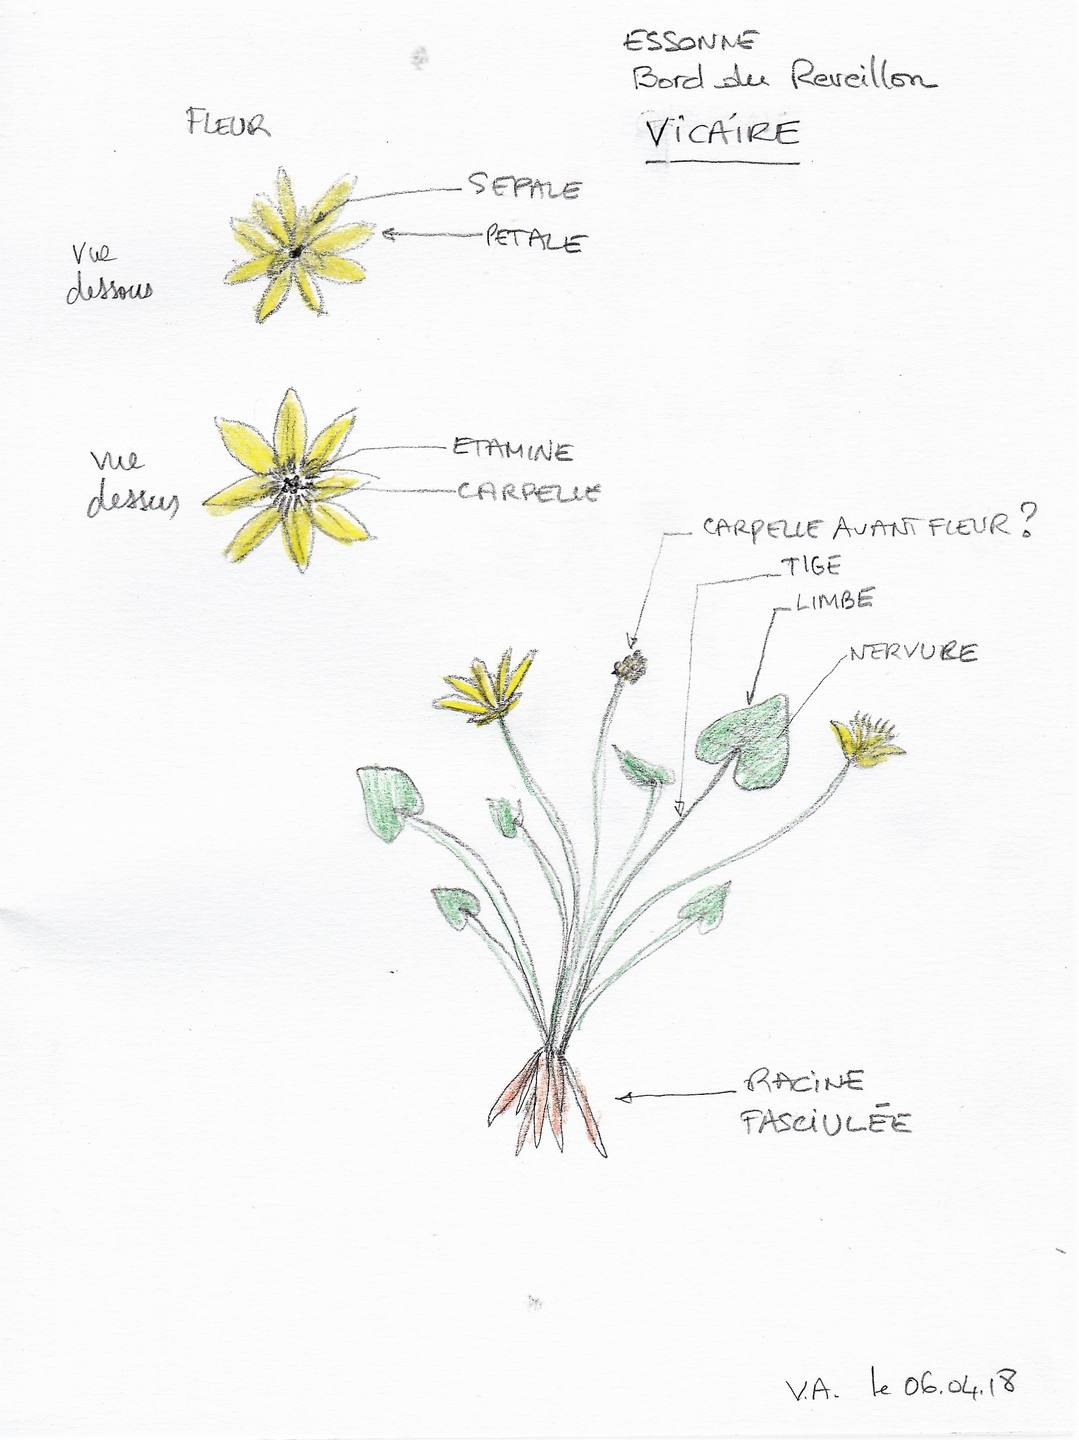 ESSONNE
Bord du Reveillon
VICAIRE
FLEUR
SEPALE
PETALE
vue
dessous
ETAMINE
CARPELLE
vue
dessus
CARPELLE AVANT FLEUR ?
TIGE
LIMBE
NERVURE
RACINE
FASCIULÉE
V.A. le 06.04.18